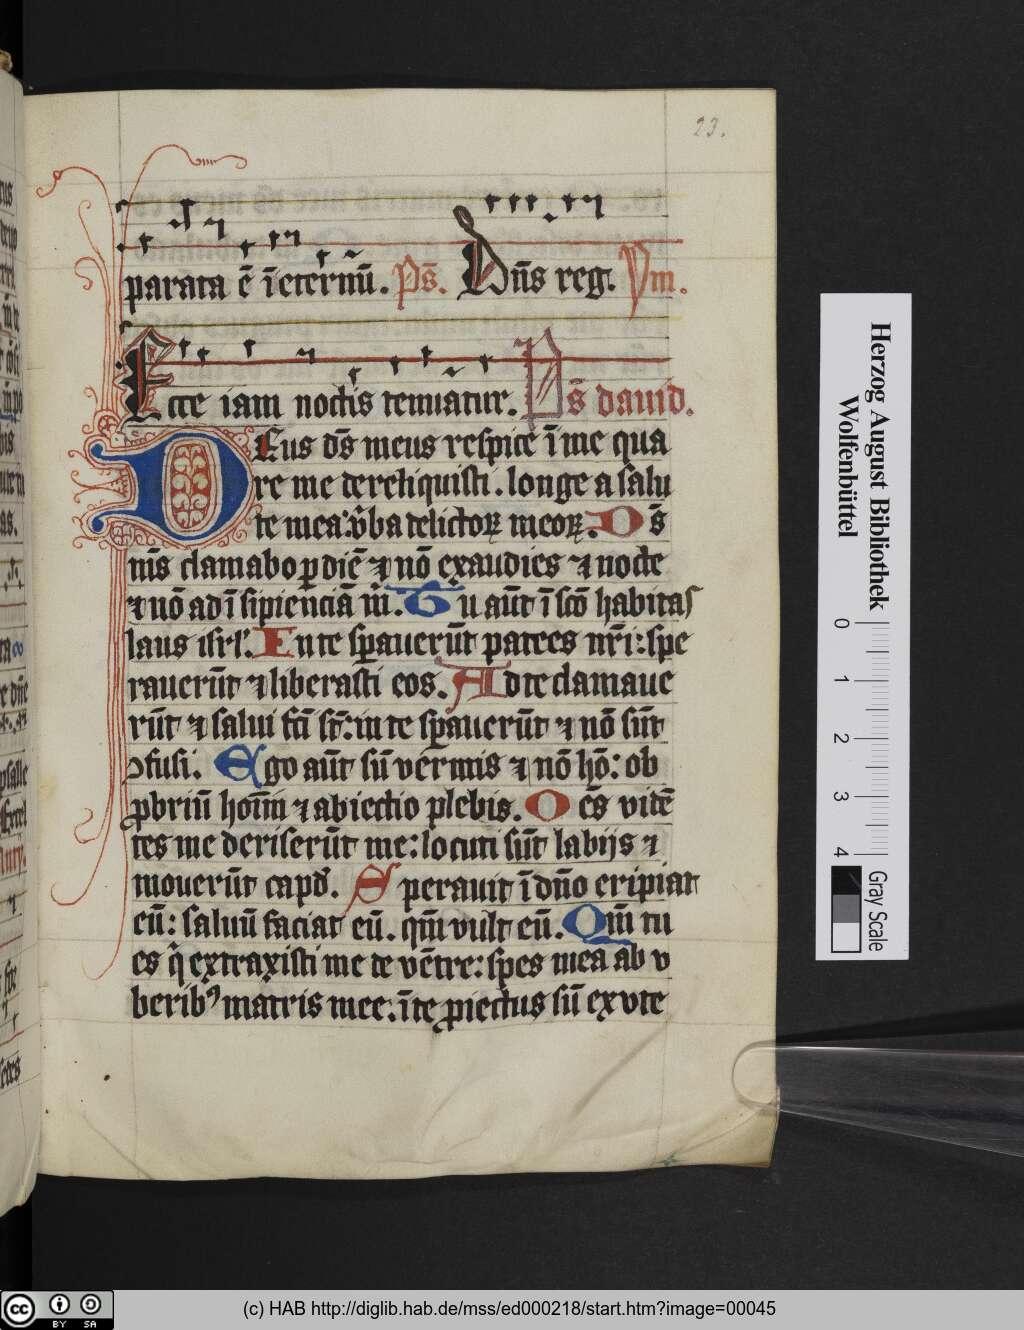 23.
parata ē ī eternū. Ps̄. Dn̄s reg. ym.
Ecce iam noctis tenuatur. Ps̄ dauid.
Deus ds̄ meus respice ī me qua
re me dereliquisti. longe a salu
te mea: v̄ba delictoꝝ meoꝝ. D s̄
ms̄ clamabo ꝑ diē ⁊ nō exaudies ⁊ nocte
⁊ nō ad īsipienciā m̄. Tu aūt ī scō habitas
laus isrl'. In te spauerūt patres nr̄i: spe
rauerūt ⁊ liberasti eos. Ad te clamaue
rūt ⁊ salui fcī st̄: in te spauerūt ⁊ nō sūt
ↄfusi. Ego aūt sū vermis ⁊ nō hō: ob
ꝓbriū homīn ⁊ abiectio plebis. O ēs vidē
tes me deriserūt me: locuti sūt labijs ⁊
mouerūt capd̄. Sperauit ī dn̄o eripiat
eū: saluū faciat eū. qm̄ vult eū. Qm̄ tu
es q̄ extraxisti me de vētre: spes mea ab v
beribꝰ matris mee: ī te ꝓiectus sū ex vte
Herzog August Bibliothek
Wolfenbüttel
0 1 2 3 4
Gray Scale
cc BY SA
(c) HAB http://diglib.hab.de/mss/ed000218/start.htm?image=00045